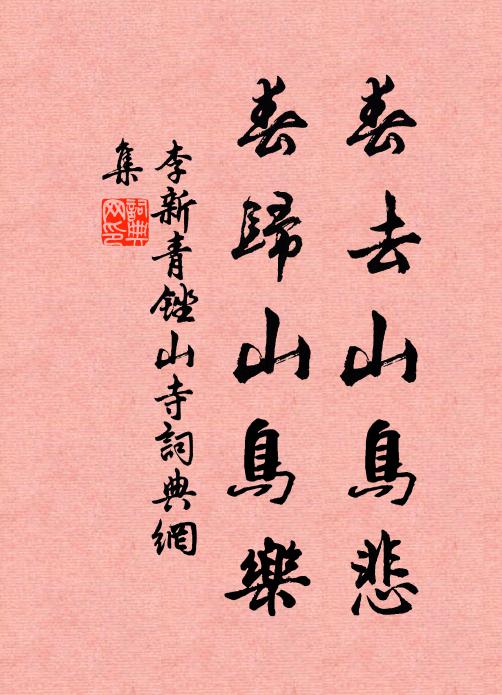 春去山鳥悲
春歸山鳥樂
李新青銼山寺詞典網
集
詞典
网印